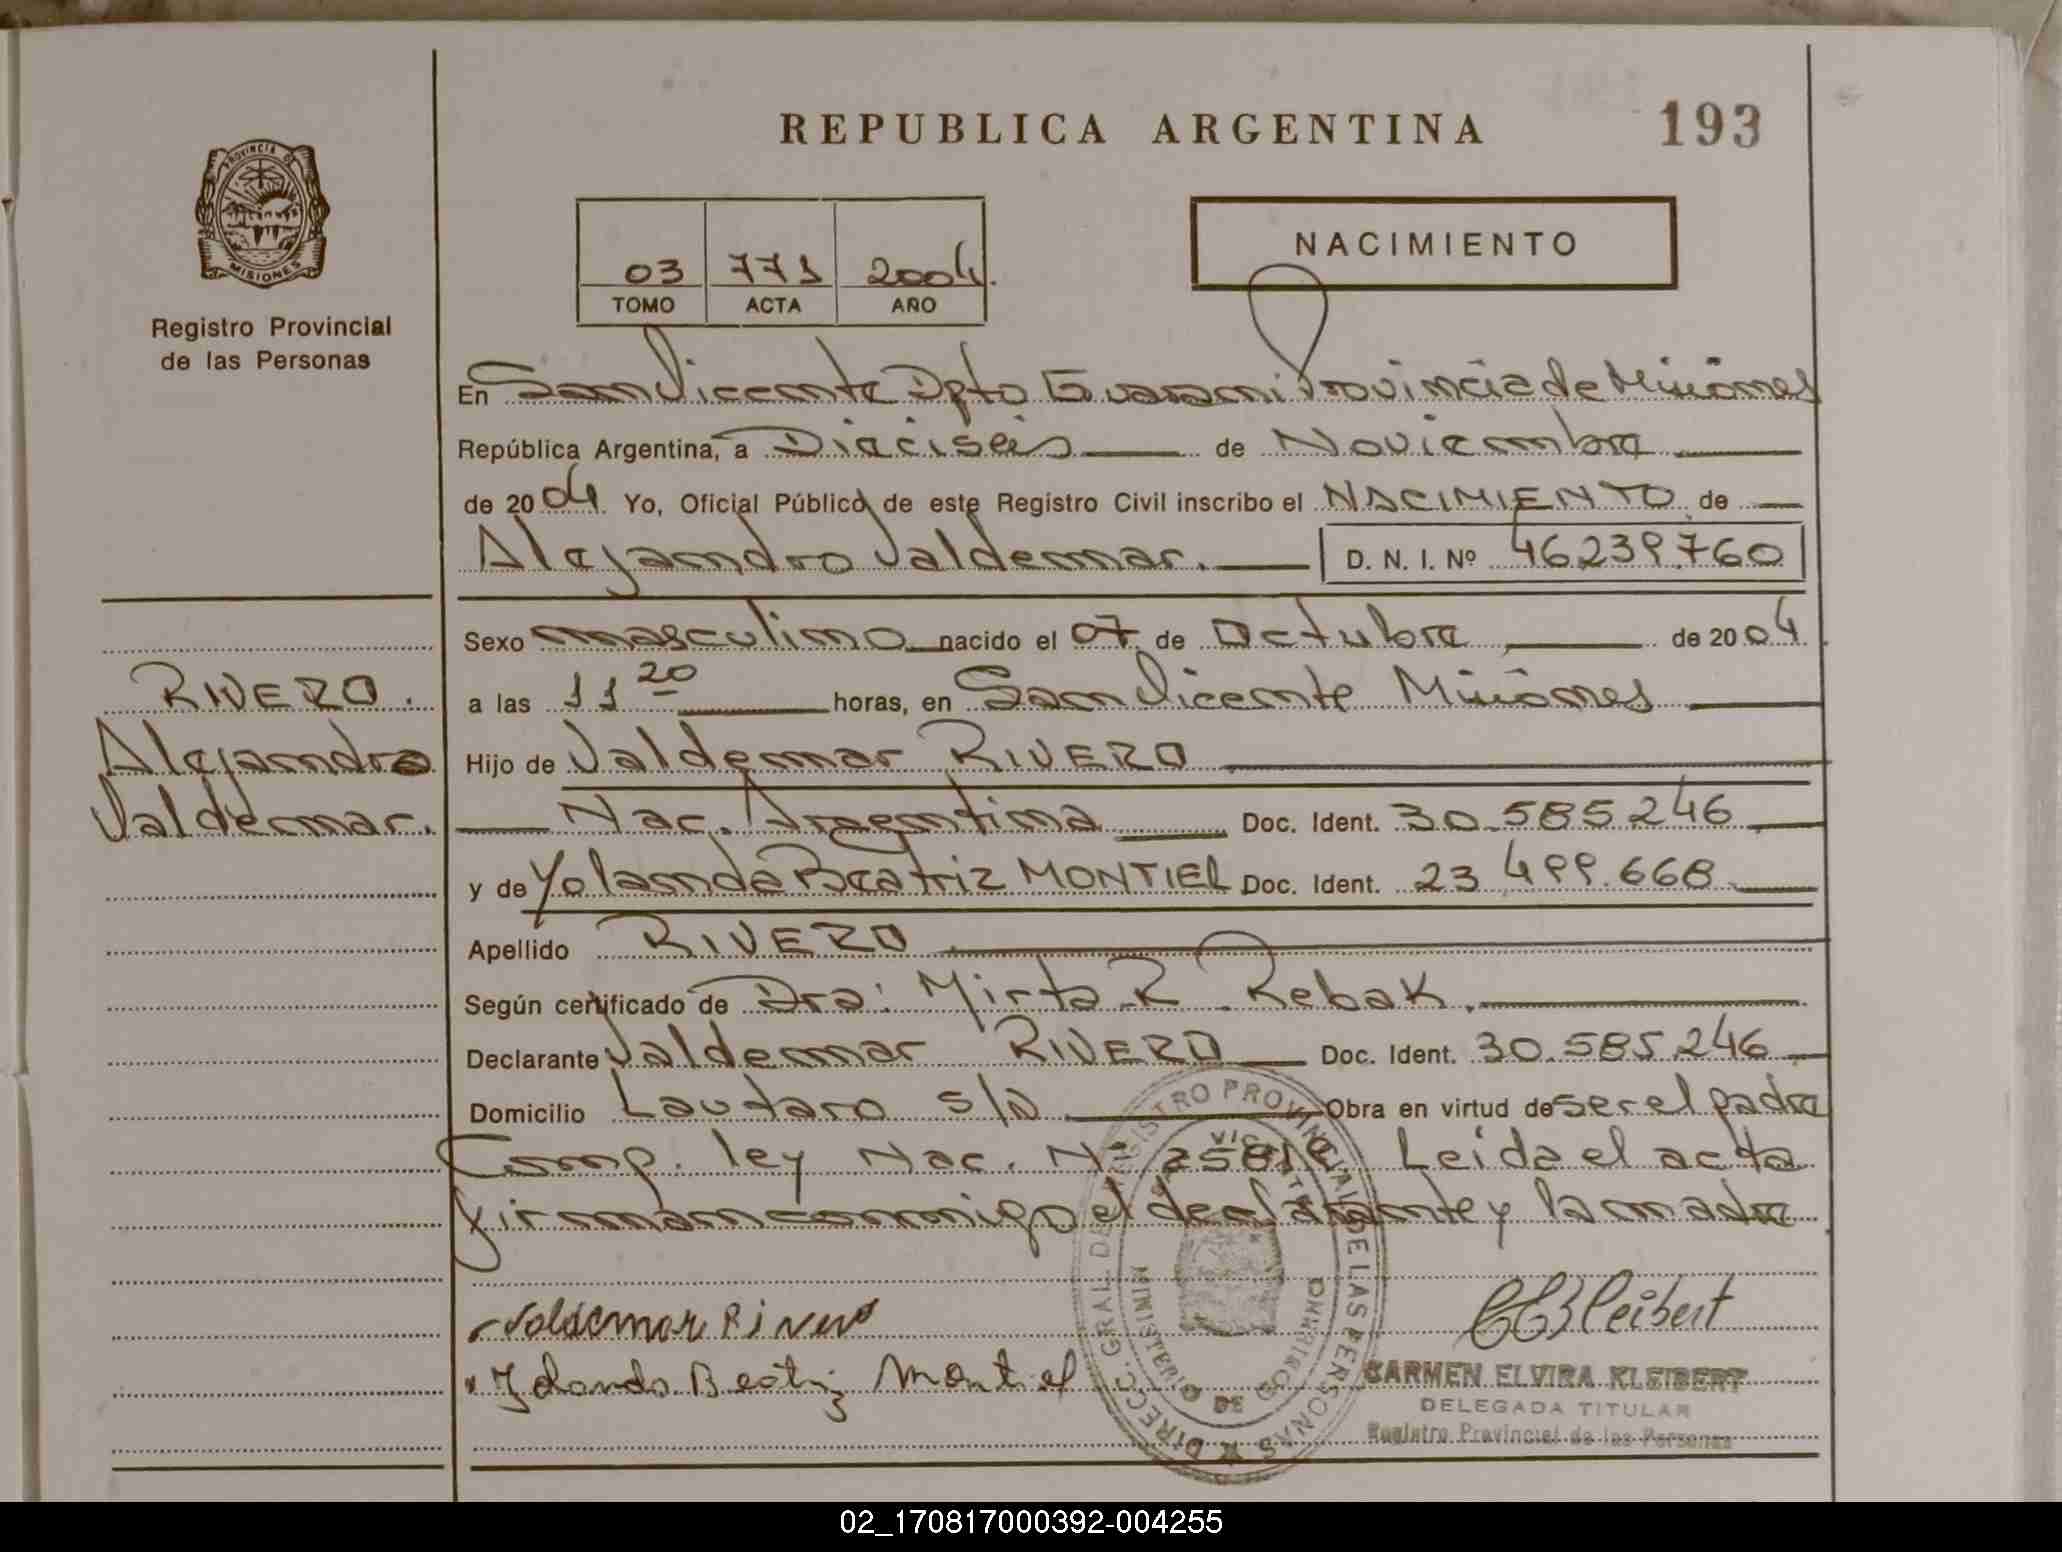 REPUBLICA ARGENTINA
193
PROVINCIA DE
MISIONES
Registro Provincial
de las Personas
03 771 2004.
TOMO ACTA AÑO
NACIMIENTO
En San Vicente Dpto Guarani Provincia de Misiones
República Argentina, a Dieciseis de Noviembre
de 2004 Yo, Oficial Público de este Registro Civil inscribo el NACIMIENTO de
Alejandro Valdemar. D. N. I. Nº 46239.760
Sexo masculino nacido el 07 de Octubre de 2004
RIVERO.
Alejandro
Valdemar.
a las 11 20 horas, en San Vicente Misiones
Hijo de Valdemar RIVERO
Nac. Argentina Doc. Ident. 30.585.246
y de Yolanda Beatriz MONTIEL Doc. Ident. 23.499.668
Apellido RIVERO
Según certificado de Dra: Mirta R. Rebak.
Declarante Valdemar RIVERO Doc. Ident. 30.585.246
Domicilio Lautaro s/N Obra en virtud de ser el padre
Comp. ley Nac. Nº Leida el acta
firman conmigo el declarante y la madre
Valdemar Rivero
Yolanda Beatriz Montiel
CARMEN ELVIRA KLEIBERT
DELEGADA TITULAR
Registro Provincial de las Personas
DIRECC. GRAL. DEL REGISTRO PROVINCIAL DE LAS PERSONAS
MINISTERIO DE GOBIERNO
02_170817000392-004255